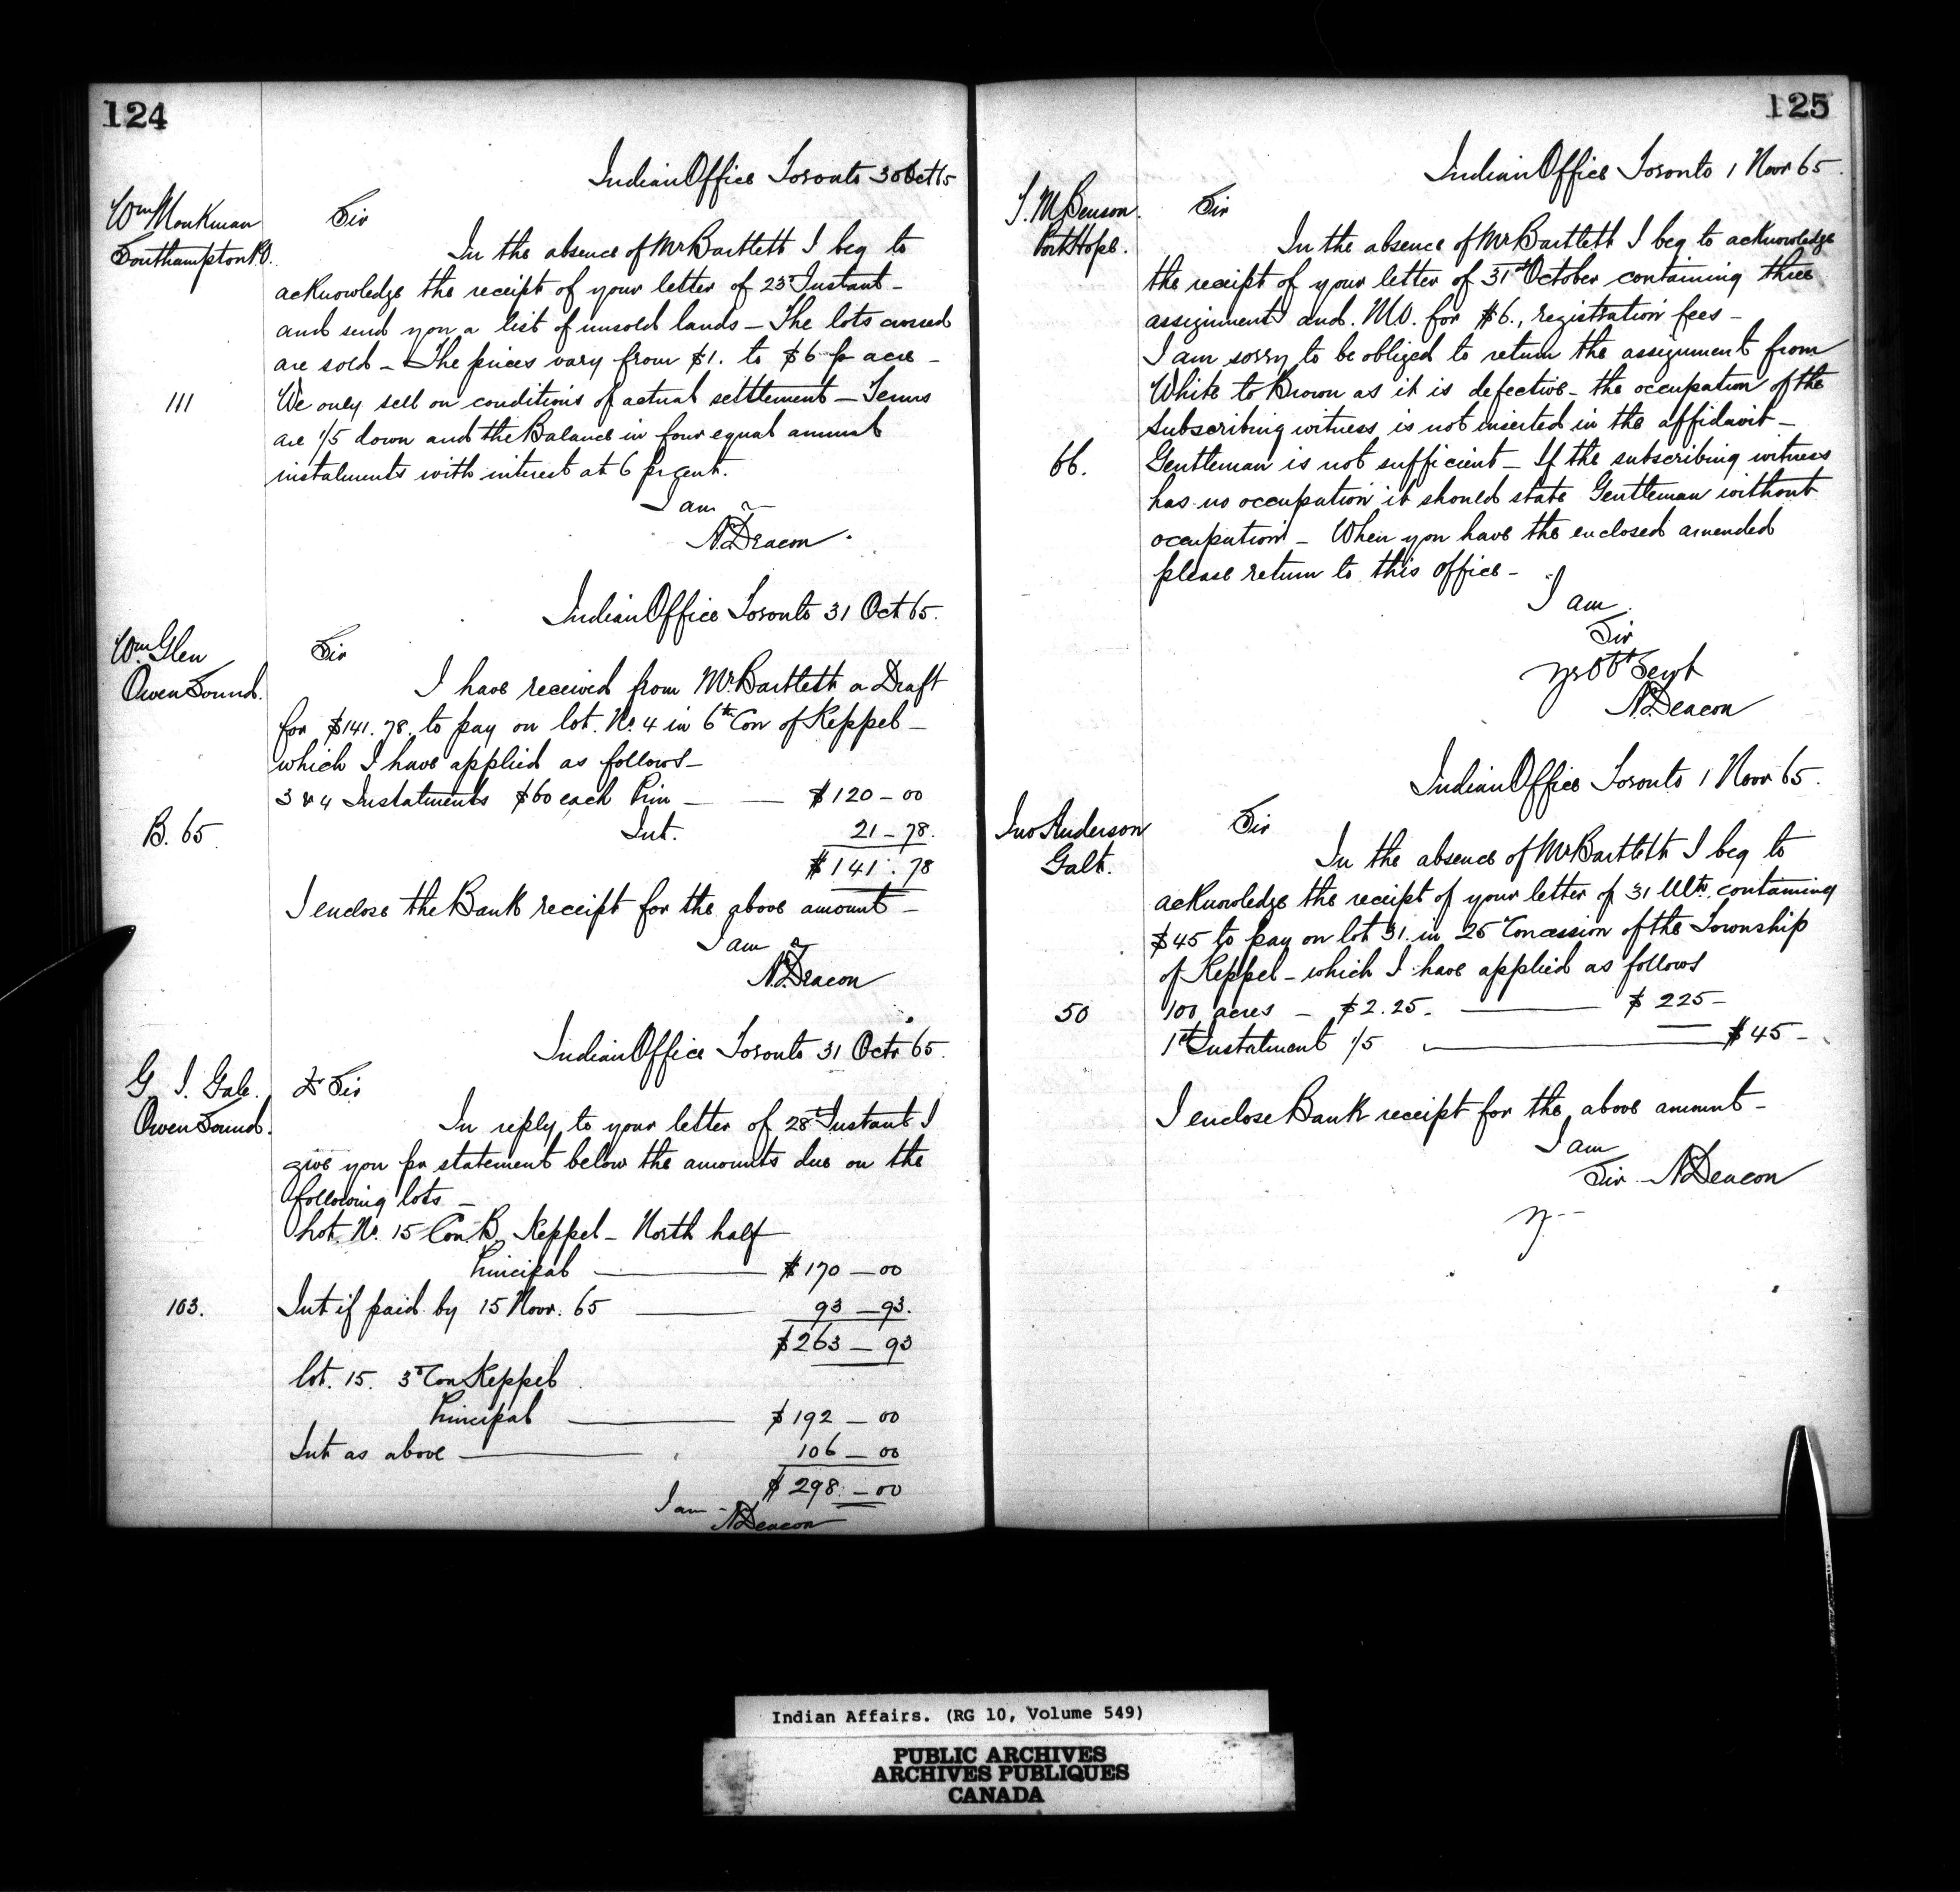 124
Indian Office Toronto 30 Oct 65
Wm Monkman
Southampton P.O.
Sir
In the absence of Mr Bartlett I beg to
acknowledge the receipt of your letter of 25th Instant -
and send you a list of unsold lands - The lots crossed
are sold - The prices vary from $1. to $6 pr acre -
111
We only sell on conditions of actual settlement - Terms
are 1/5 down and the Balance in four equal annual
instalments with interest at 6 pr cent.
I am
N.Deacon.
Indian Office Toronto 31 Oct 65.
Wm Glen
Owen Sound.
Sir
I have received from Mr. Bartlett a Draft
for $141.78. to pay on lot. No. 4 in 6th Con of Keppel -
which I have applied as follows -
3 & 4 Instalments $60 each Prin - — $120 - 00
B. 65
Int. 21 - 78.
$141 . 78
I enclose the Bank receipt for the above amount -
I am
N.Deacon
Indian Office Toronto 31 Octr 65.
G. J. Gale.
Owen Sound.
Dr Sir
In reply to your letter of 28th Instant I
give you pr statement below the amounts due on the
following lots -
Lot. No. 15 Con. B, Keppel - North half
Principal — $170 - 00
103.
Int if paid by 15 Novr. 65 — 93 - 93.
$263 - 93
lot. 15. 3rd Con Keppel
Principal — $192 - 00
Int as above — 106 - 00
$298 - 00
I am -
N.Deacon
125
Indian Office Toronto 1 Novr 65.
T. M Benson.
Port Hope.
Sir
In the absence of Mr Bartlett I beg to acknowledge
the receipt of your letter of 31st October containing three
assignments and. M.O. for $6., registration fees -
I am sorry to be obliged to return the assignment from
White to Brown as it is defective - the occupation of the
subscribing witness is not inserted in the affidavit -
66.
Gentleman is not sufficient - If the subscribing witness
has no occupation it should state Gentleman without
occupation - When you have the enclosed amended
please return to this office -
I am
Sir
Yr Obt Servt
N.Deacon
Indian Office Toronto 1 Novr 65.
Jno Anderson
Galt.
Sir
In the absence of Mr Bartlett I beg to
acknowledge the receipt of your letter of 31 Ulto. containing
$45 to pay on lot 31. in 25 Concession of the Township
of Keppel - which I have applied as follows
50
100 acres - $2.25. — $225 -
1st Instalment 1/5 — $45 -
I enclose Bank receipt for the above amount -
I am
Sir - N.Deacon
Y. --
Indian Affairs. (RG 10, Volume 549)
PUBLIC ARCHIVES
ARCHIVES PUBLIQUES
CANADA